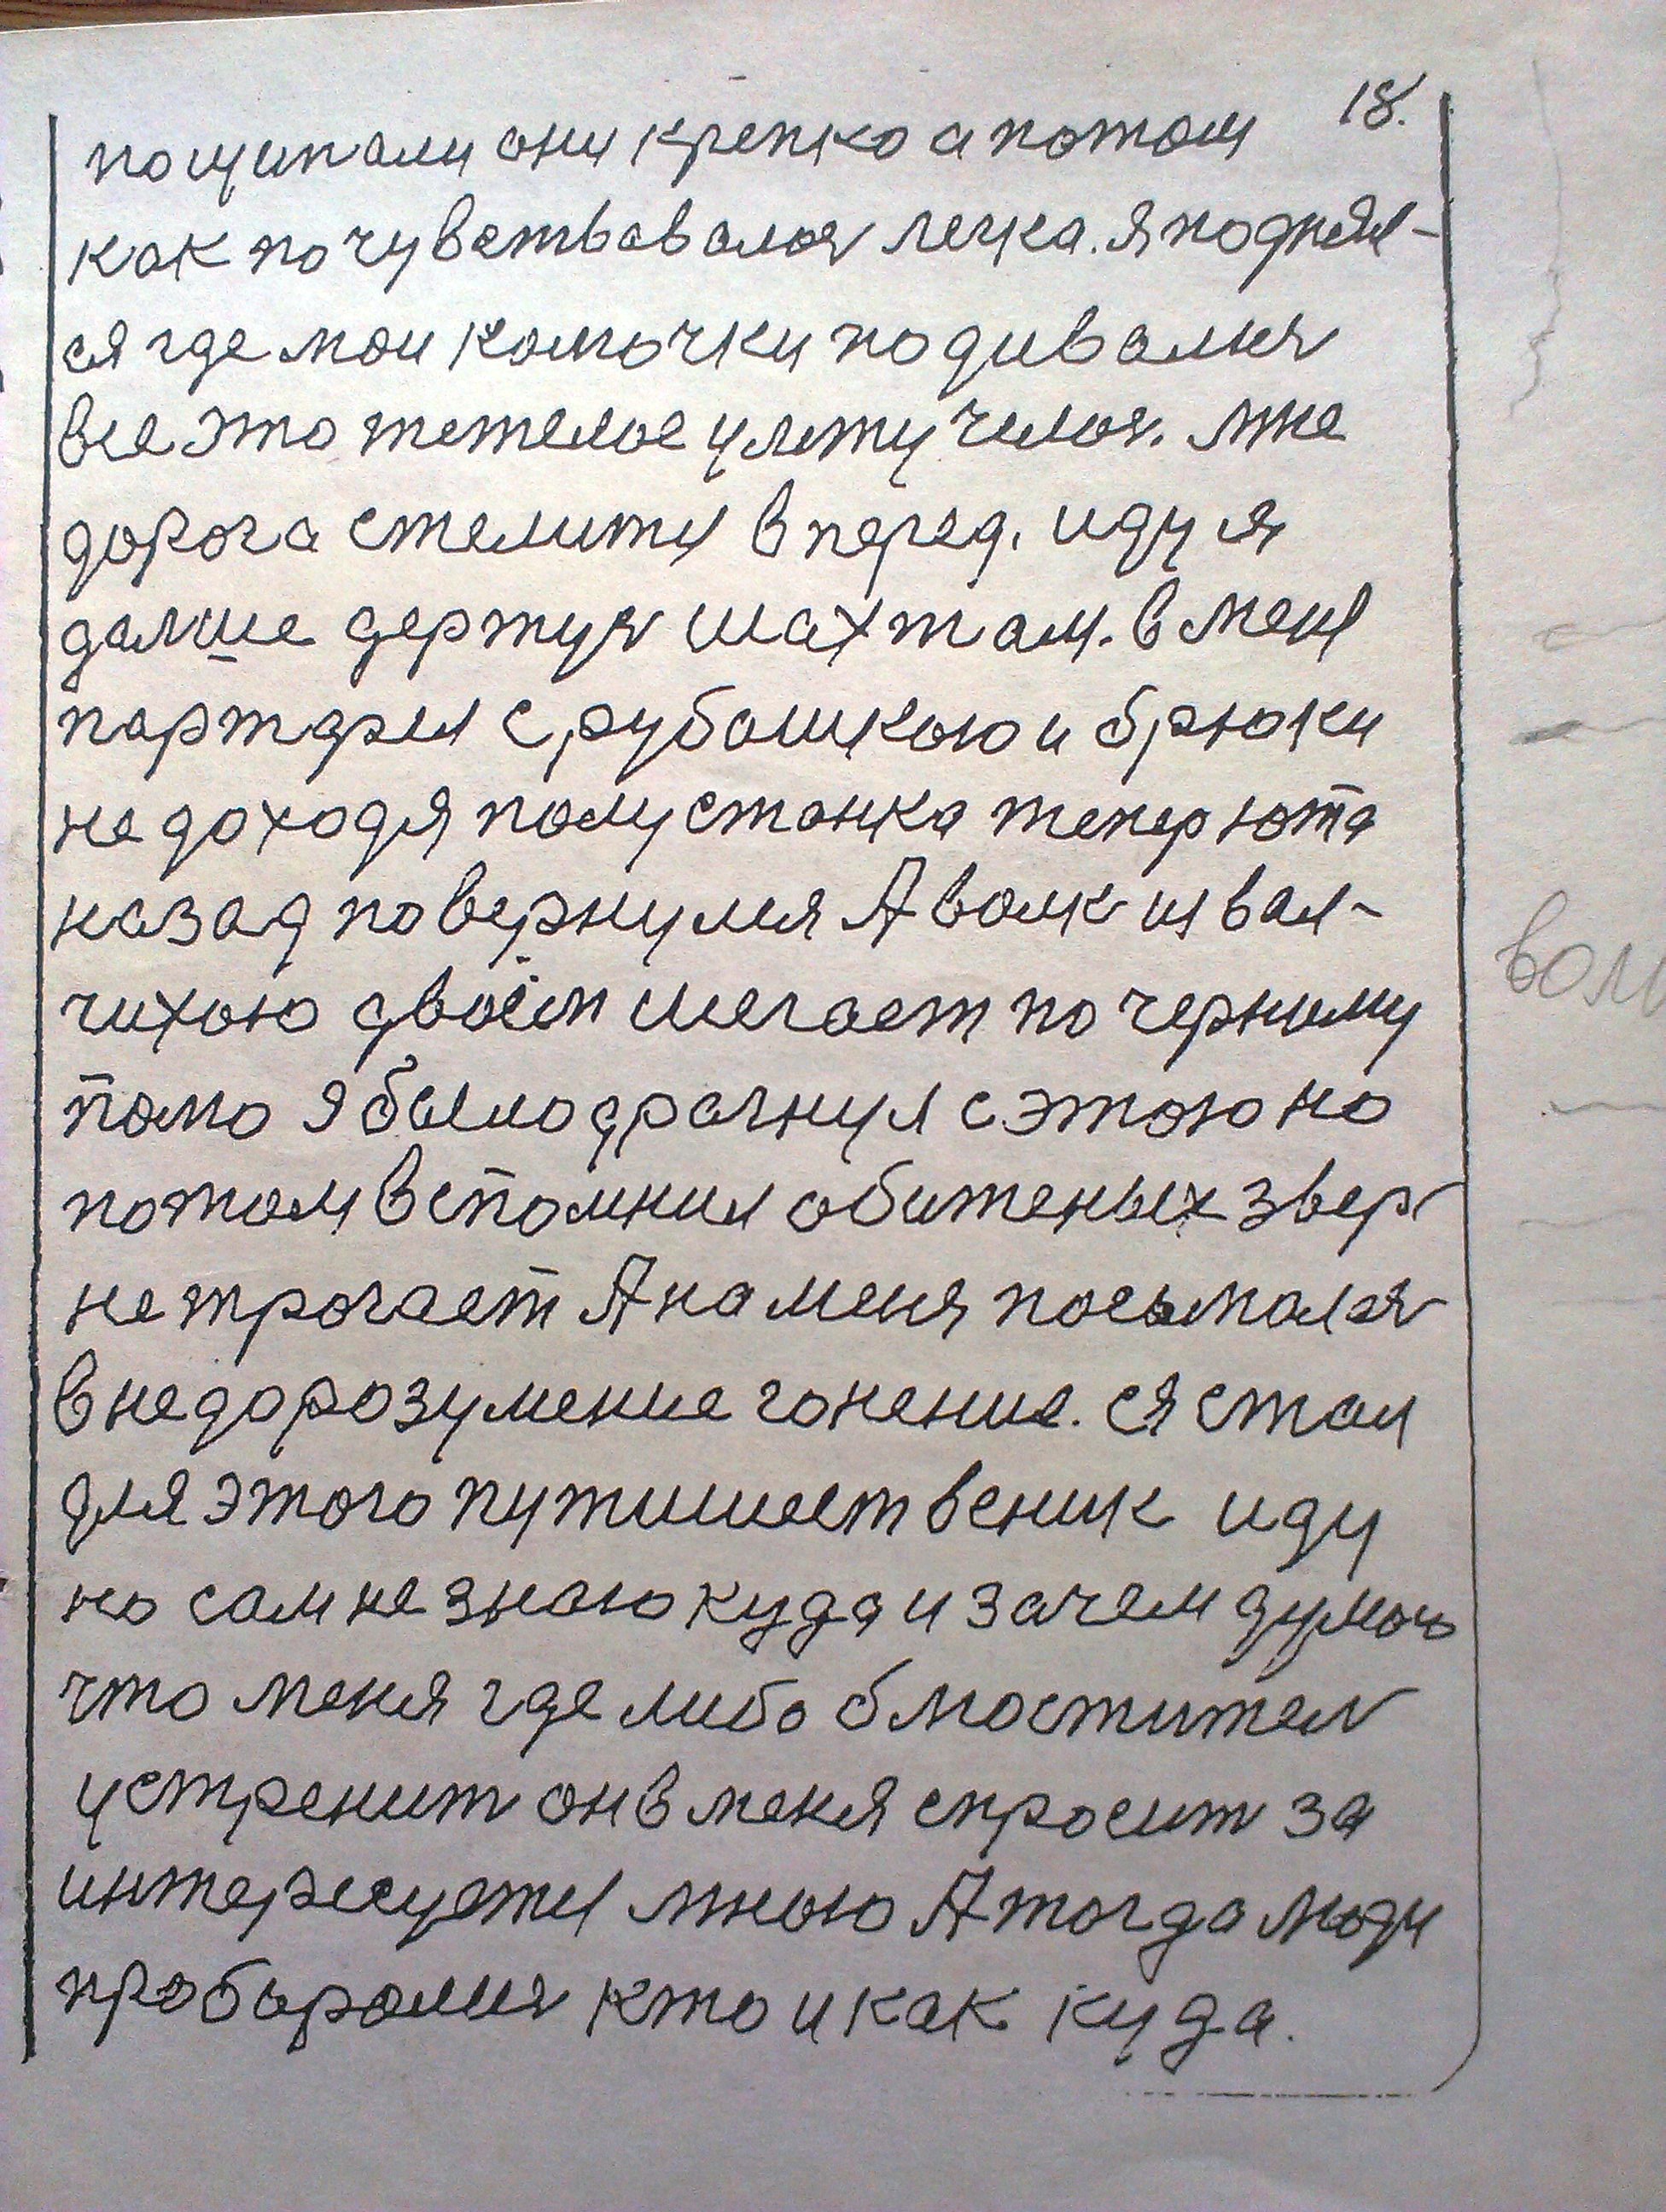 18.
пощипали они крепко а потом
как почувствовался легка. я поднял-
ся где мои комочки подивался
все это тетелое улетучелося. мне
дорога стелится вперед. иду я
далше держуся шахтам. в меня
партфел с рубашкою и брюки
не доходя полустанка теперюта
назад повернулся А волк из вал-
чихою двоём шегает по черныму
полю я было драгнул с этою но
потом вспомнил обитеных звер
не трогает А на меня посыпался
в недорозумение гонение. ся стал
для этого путишественик иду
но сам не знаю куда и зачем думаю
что меня где либо блюстител
устренит он в меня спросит за
интересуется мною А тогда люди
пробыралися кто и как куда.
вол